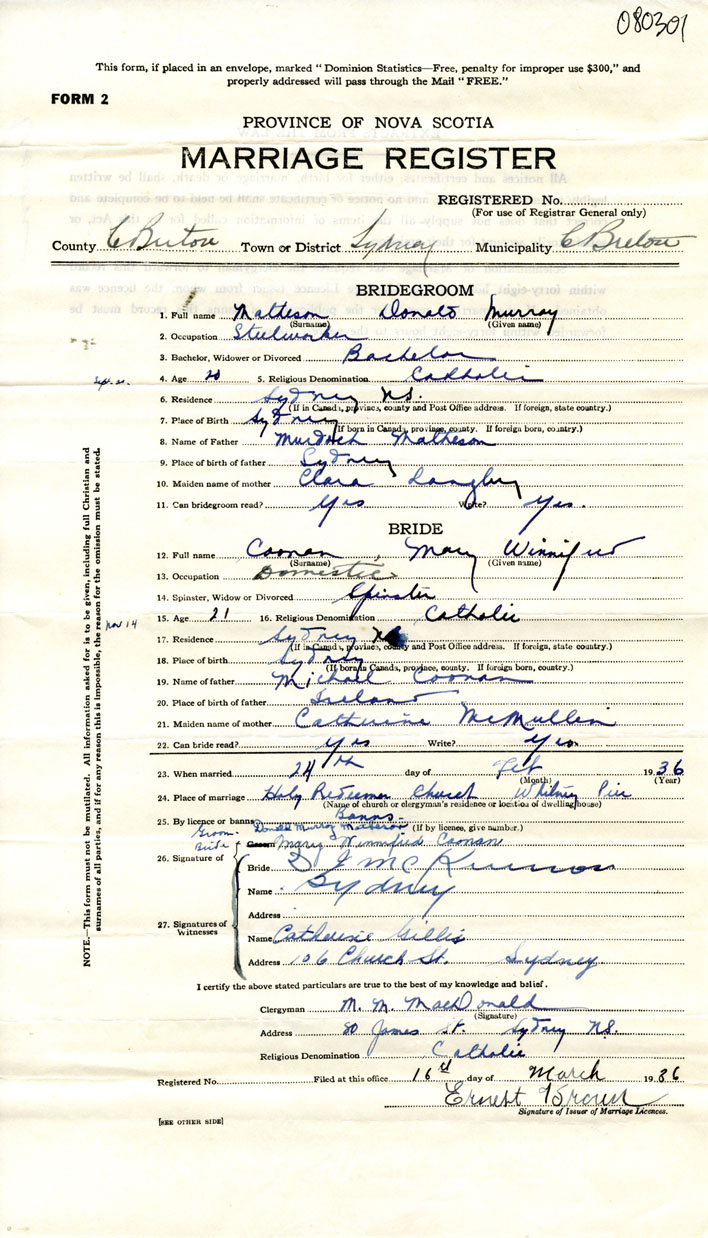 080301
This form, if placed in an envelope, marked "Dominion Statistics—Free, penalty for improper use $300," and
properly addressed will pass through the Mail "FREE."
FORM 2
PROVINCE OF NOVA SCOTIA
MARRIAGE REGISTER
REGISTERED No.
(For use of Registrar General only)
County C Breton Town or District Sydney Municipality C Breton
BRIDEGROOM
1. Full name Matheson Donald Murray
(Surname) (Given name)
2. Occupation Steelworker
3. Bachelor, Widower or Divorced Bachelor
Sept. 4. Age 20 5. Religious Denomination Catholic
6. Residence Sydney N.S.
(If in Canada, province, county and Post Office address. If foreign, state country.)
7. Place of Birth Sydney
(If born in Canada, province, county. If foreign born, country.)
8. Name of Father Murdoch Matheson
9. Place of birth of father Sydney
10. Maiden name of mother Clara Langley
11. Can bridegroom read? Yes Write? Yes.
BRIDE
12. Full name Coonan, Mary Winnifred
(Surname) (Given name)
13. Occupation Domestic
14. Spinster, Widow or Divorced Spinster
15. Age 21 16. Religious Denomination Catholic
Nov 14
17. Residence Sydney NS
(If in Canada, province, county and Post Office address. If foreign, state country.)
18. Place of birth Sydney
(If born in Canada, province, county. If foreign born, country.)
19. Name of father Michael Coonan
20. Place of birth of father Ireland
21. Maiden name of mother Catherine McMullin
22. Can bride read? Yes Write? Yes
23. When married 24th day of Feb 1936
(Month) (Year)
24. Place of marriage Holy Redeemer Church Whitney Pier
(Name of church or clergyman's residence or location of dwelling house)
25. By licence or banns Banns
(If by licence, give number.)
Groom Donald Murray Matheson
Bride Groom Mary Winnifred Coonan
26. Signature of
Bride D J McKinnon
Name Sydney
Address
27. Signatures of Witnesses
Name Catherine Gillis
Address 106 Church St. Sydney
I certify the above stated particulars are true to the best of my knowledge and belief.
Clergyman M. M. MacDonald
(Signature)
Address 80 James St. Sydney NS.
Religious Denomination Catholic
Registered No. Filed at this office 16th day of March 1936
Ernest Brown
Signature of Issuer of Marriage Licences.
[SEE OTHER SIDE]
NOTE.—This form must not be mutilated. All information asked for is to be given, including full Christian and
surnames of all parties, and if for any reason this is impossible, the reason for the omission must be stated.